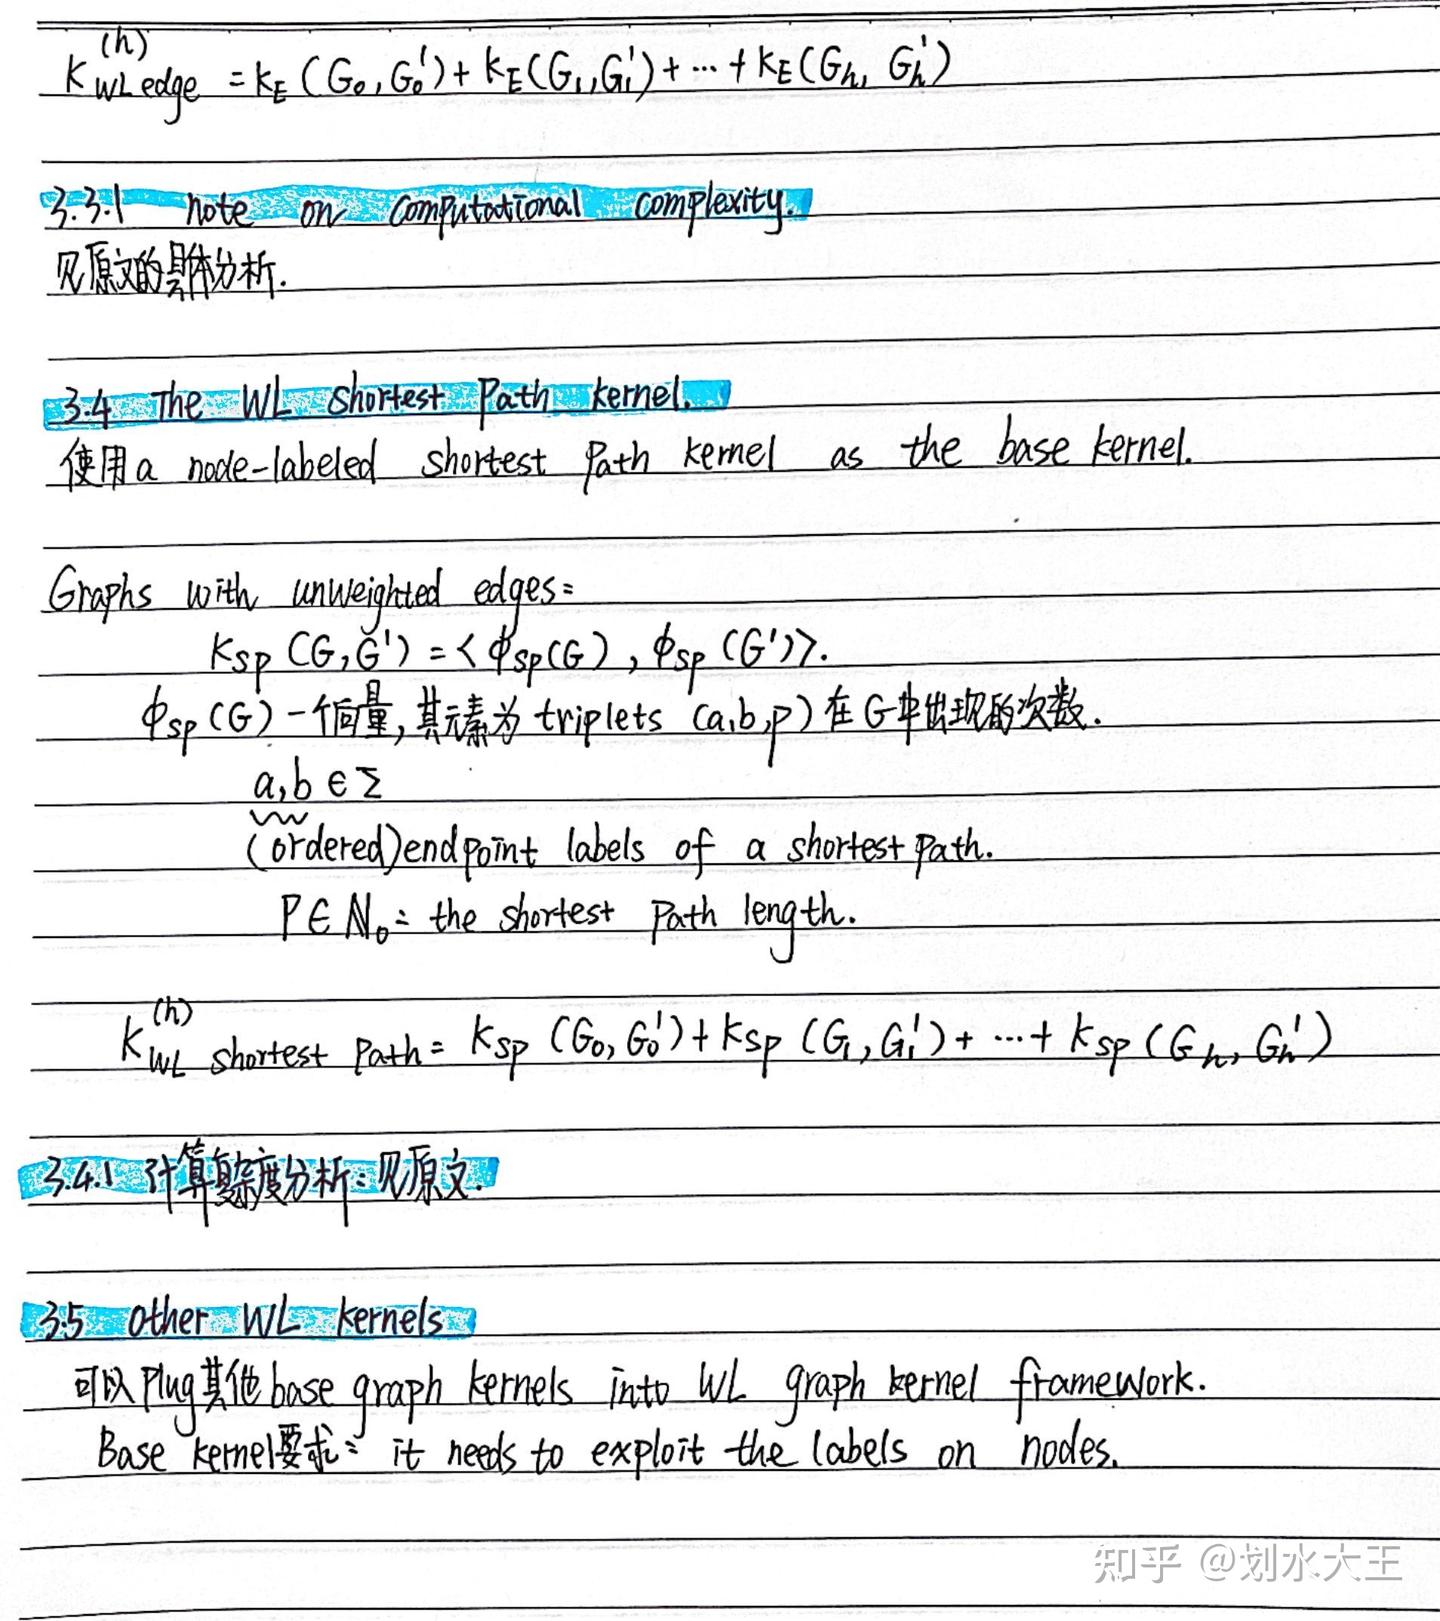 K_{WL edge}^{(h)} = k_E (G_0, G_0') + k_E(G_1, G_1') + ... + k_E(G_h, G_h')
3.3.1 note on computational complexity.
见原文的具体分析.
3.4 The WL shortest path kernel.
使用a node-labeled shortest path kernel as the base kernel.
Graphs with unweighted edges:
k_{sp} (G, G') = < ϕ_{sp}(G), ϕ_{sp}(G') >.
ϕ_{sp}(G) 一个向量, 其元素为 triplets (a,b,p) 在G中出现的次数.
a, b ∈ Σ
(ordered) endpoint labels of a shortest path.
P ∈ N_0: the shortest path length.
K_{WL shortest path}^{(h)} = k_{sp} (G_0, G_0') + k_{sp} (G_1, G_1') + ... + k_{sp} (G_h, G_h')
3.4.1 计算复杂度分析: 见原文.
3.5 Other WL kernels
可以 plug 其他 base graph kernels into WL graph kernel framework.
Base kernel要求: it needs to exploit the labels on nodes.
知乎 @划水大王